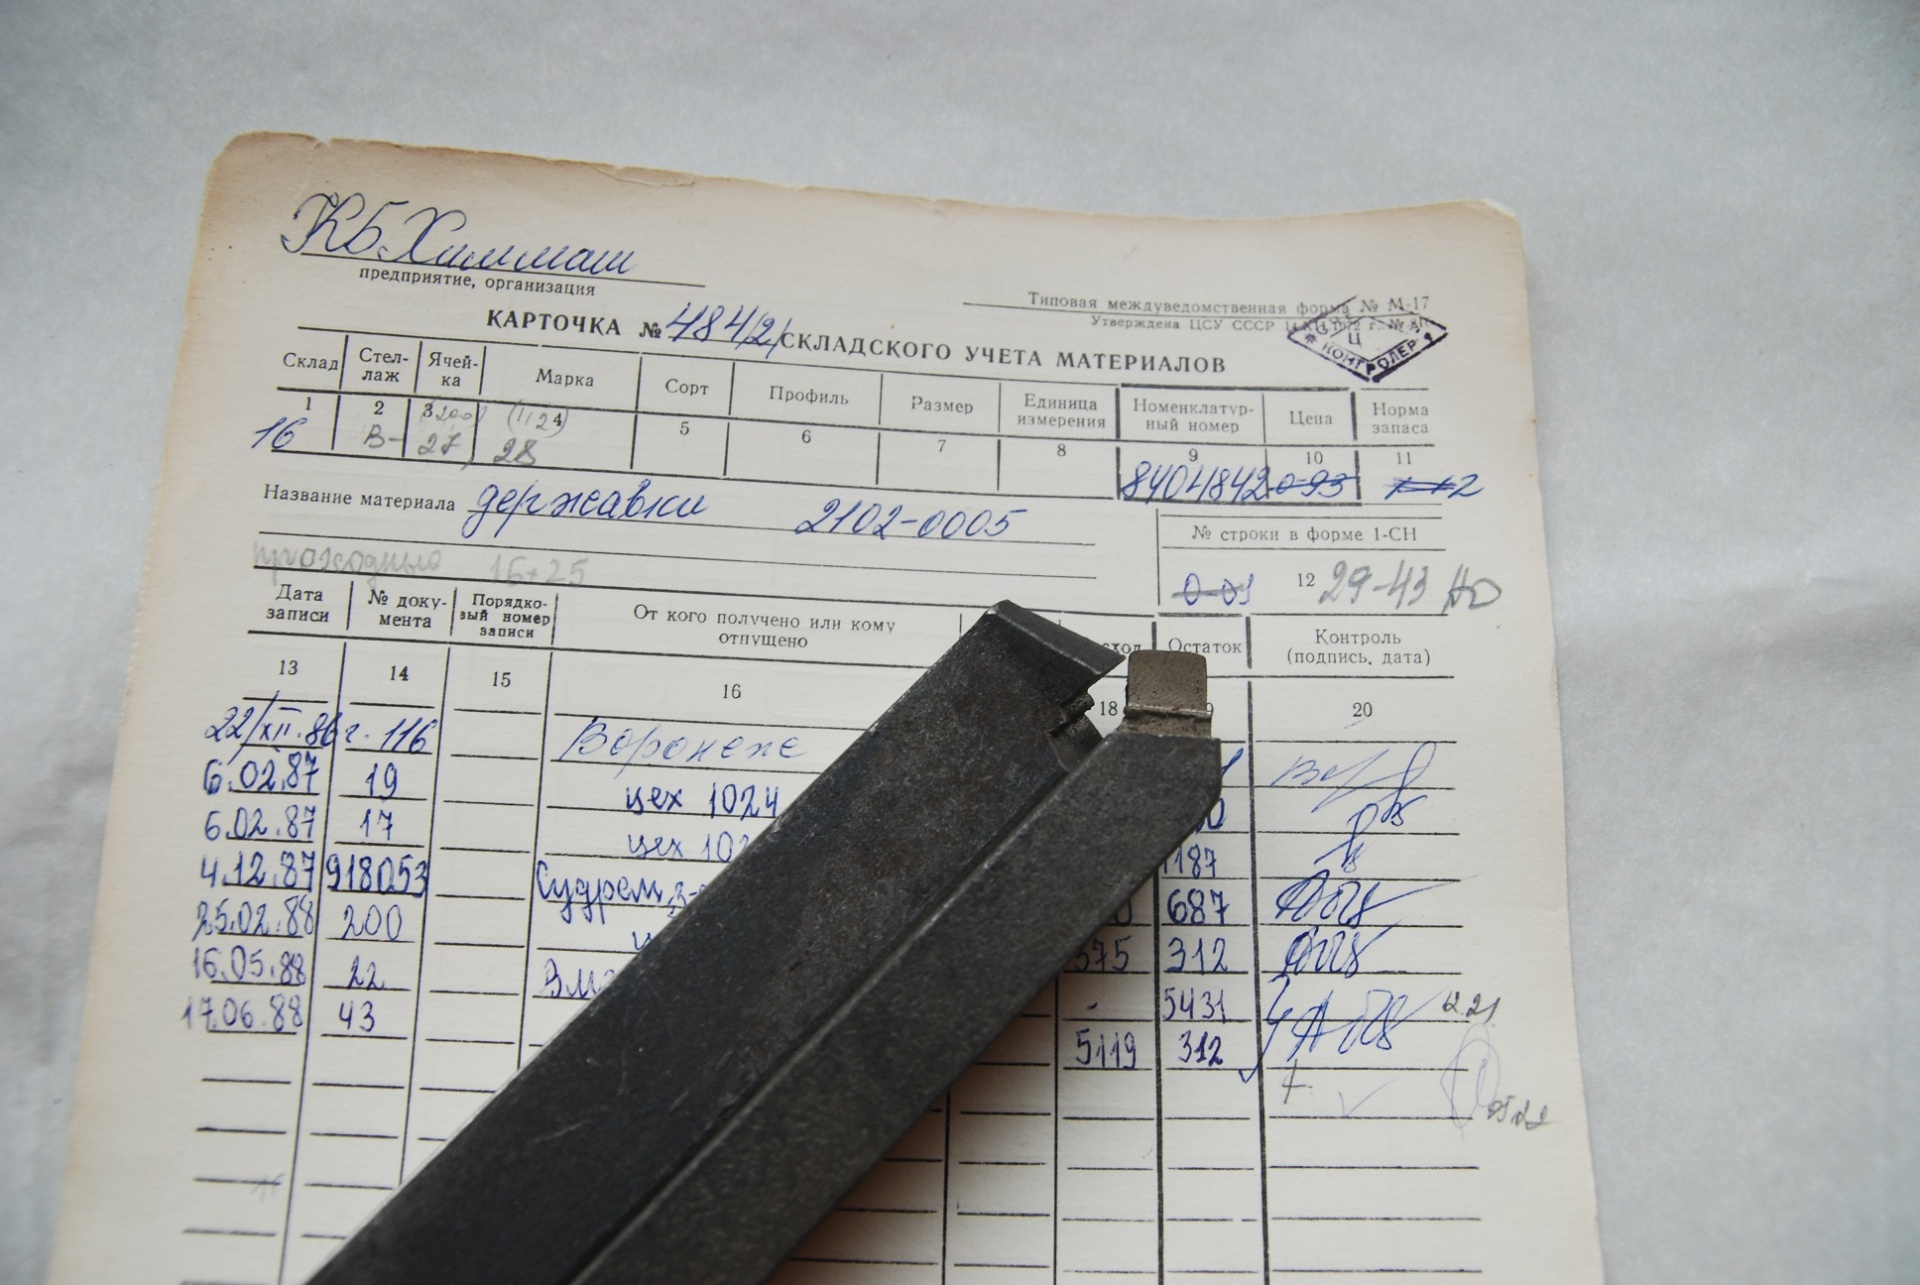 КБ Химмаш
предприятие, организация
Типовая междуведомственная форма № М-17
Утверждена ЦСУ СССР
КАРТОЧКА № 484/2/ СКЛАДСКОГО УЧЕТА МАТЕРИАЛОВ
КОНТРОЛЕР
Склад Стел-лаж Ячей-ка Марка Сорт Профиль Размер Единица измерения Номенклатур-ный номер Цена Норма запаса
1 2 3 4 5 6 7 8 9 10 11
(1124)
16 В- 27 28 8404842 0-93 2
Название материала державки 2102-0005
№ строки в форме 1-СН
проходные 16×25
0-01 12 29-43
Дата записи № доку-мента Порядко-вый номер записи От кого получено или кому отпущено сход Остаток Контроль (подпись, дата)
13 14 15 16 18 20
22/XII.86г. 116 Воронеже
6.02.87 19 цех 1024
6.02.87 17 цех 102
4.12.87 918053 Судрем 1187
25.02.88 200 687
16.05.88 22 375 312
17.06.88 43 - 5431
5119 312